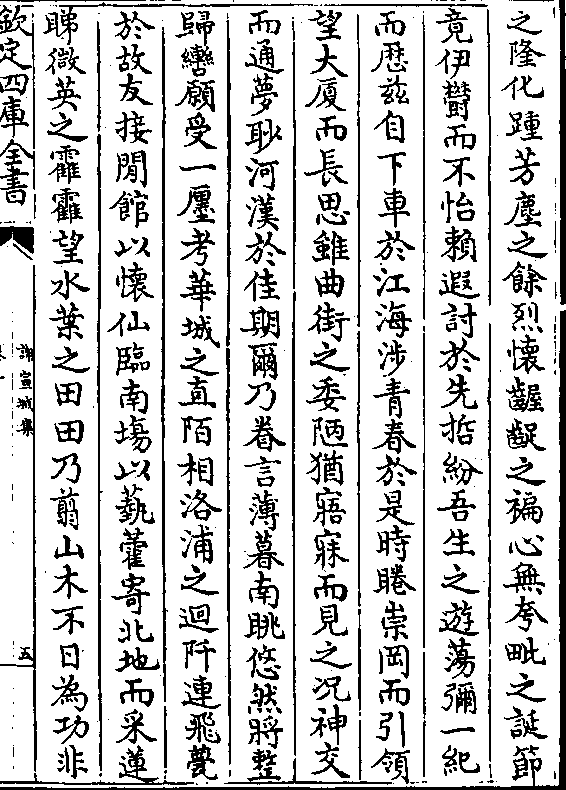 之隆化踵芳塵之餘烈懷齷齪之褊心無夸毗之誕節
竟伊鬱而不怡賴遐討於先哲紛吾生之遊蕩彌一紀
而歴兹自下車於江海涉青春於是時睠崇岡而引領
望大厦而長思雖曲街之委陋猶寤寐而見之况神交
而通夢眇河漢於佳期爾乃眷言薄暮南眺悠然將整
歸轡願受一廛考華城之直陌相洛浦之迴阡連飛甍
於故友接閒館以懷仙臨南塲以蓺藿寄北地而采蓮
睇微英之靃靃望水葉之田田乃翦山木不日為功非
欽定四庫全書
謝宣城集
五